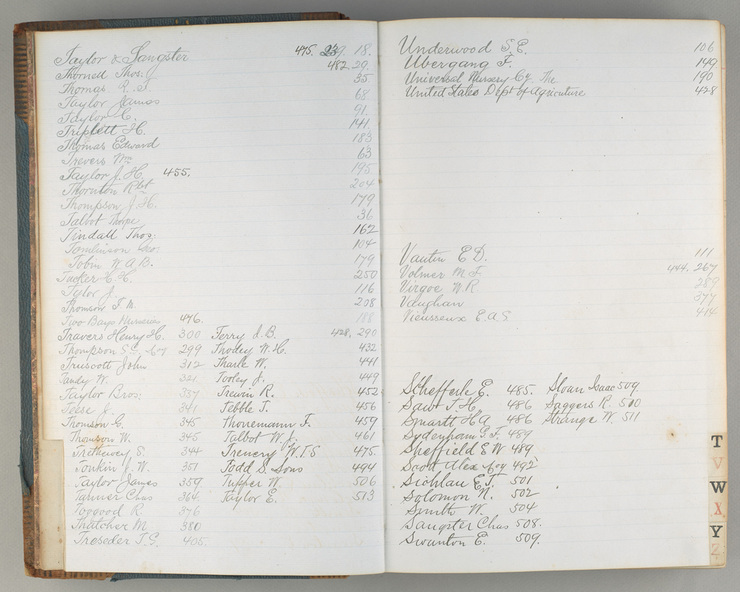 Taylor & Sangster 475. 239. 18.
Thornell Thos. J 482. 29.
Thomas R. S. 35
Taylor James 68
Taylor C. 91.
Triplett H. 141
Thomas Edward 183
Trevers Wm 63
Taylor J. H. 455. 195
Thornton Robt 204
Thompson J. H. 179
Talbot Thorpe 36
Tindall Thos: 162
Tomlinson Geo: 104
Tobin W. A. B. 179
Tucker C. H. 250
Tylor J 116
Thomson T. W. 208
Two Bays Nurseries 476. 188
Travers Henry H. 300 Terry J. B. 428. 290
Thompson 299 Thodey W. H. 432
Truscott John 312 Thark W. 441
Tandy W. 321 Torley J. 449
Taylor Bros: 337 Trewin R. 452
Tesse J. 341 Tebble T. 456
Thomson G. 345 Thonemann F. 459
Thomson W. 345 Talbot W. J. 461
Trethewey S. 344 Trenery W. T. S 475.
Tonkin J. W. 351 Todd S. Sons 494
Taylor James 359 Tupper W. 506
Tanner Chas 364. Taylor E. 513
Toogood R. 376
Thatcher M. 380
Treseder T. G. 405.
Underwood S. E. 106
Ubergang F. 149
Universal Nursery Co. The 190
United States Dept of Agriculture 428
Vautin E D. 111
Volmer M. F. 444. 267
Virgoe W. R. 289
Vaughan 377
Vieusseux E. A. S 414
Schefferle E. 485. Sloan Isaac 509
Sawt J. H. 486 Saggers R. 510
Smartt H A 486 Strange W. 511
Sydenham G. F. 489
Sheffield E W 489.
Scott Alex 492
Siohlau E. T. 501
Solomon N. 502
Smith W. 504
Sangster Chas 508.
Swanton E. 509.
T
V
W
X
Y
Z